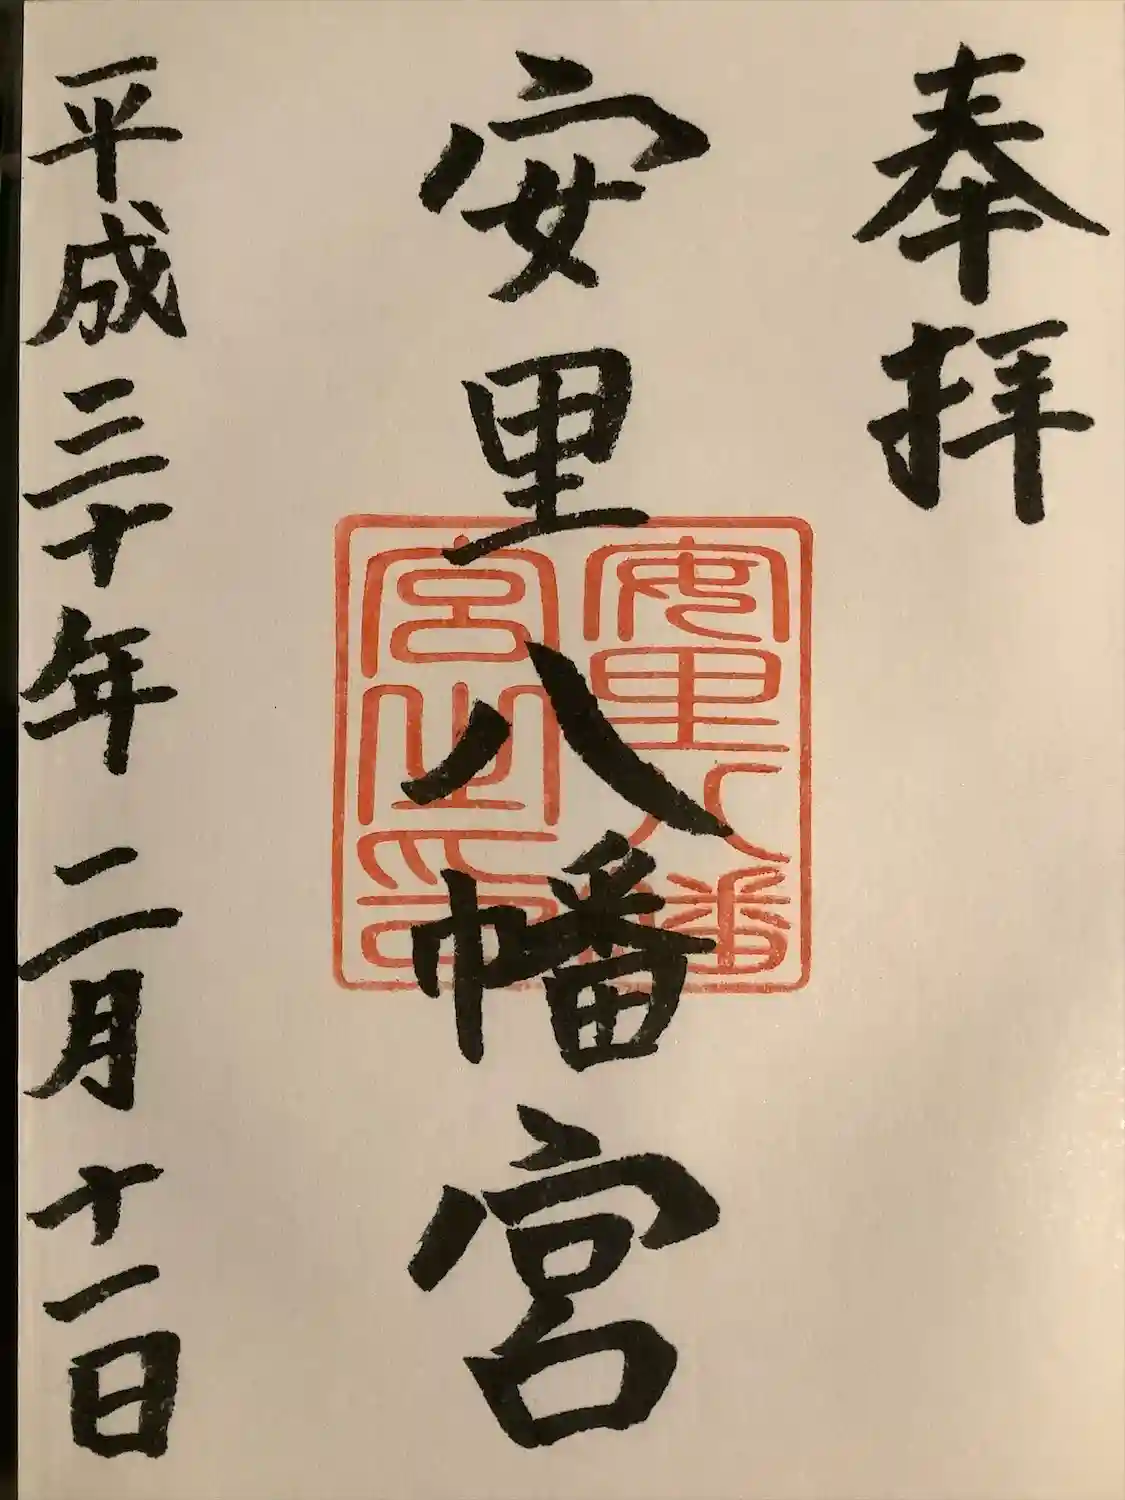 奉拝
安里八幡宮
安里八幡
宮之印
平成三十年二月十一日